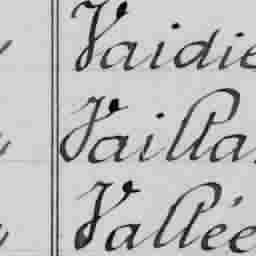 Vaidie
Vailla
Vallée